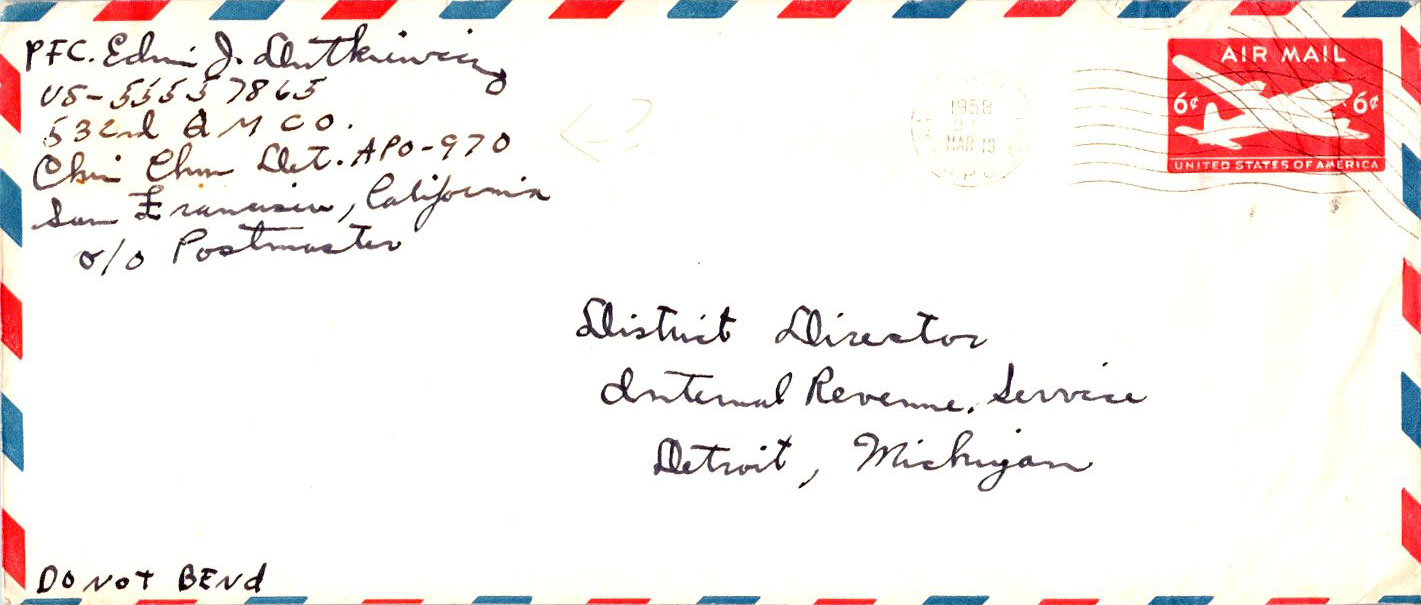 PFC. Edwin J. Dutkiewicz
US-55557865
532nd Q M CO.
Chin Chun Det. APO-970
San Francisco, California
c/o Postmaster
1958
MAR 18
AIR MAIL
6¢ 6¢
UNITED STATES OF AMERICA
District Director
Internal Revenue Service
Detroit, Michigan
DO NOT BEND